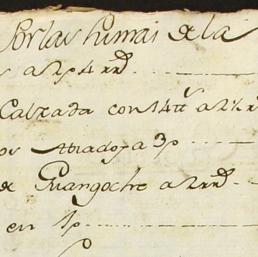 Por las humas de la
s a 2p 4 rr
Calzada con 14 tt a 2½ r
os Atado, a 3p
de Guangoche a 2 rr
en 1p